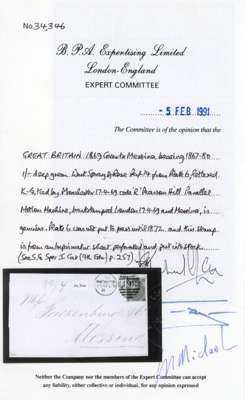 No. 34,346
B. P. A. Expertising Limited
London-England
EXPERT COMMITTEE
- 5 FEB 1991
The Committee is of the opinion that the
GREAT BRITAIN 1869 Cover to Messina, bearing 1867-80
1/- deep green Wmk Spray of Rose Perf.14 from Plate 6, lettered
K-G, tied by Manchester 17-4-69 code 'R' Pearson Hill Parallel
Motion Machine, backstamped London 17-4-69 and Messina, is
genuine. Plate 6 was not put to press until 1872, and this stamp
is from an imprimatur sheet perforated and put into stock
(See S.G Spec I Cat (9th Edn) p. 257)
Messina
M Michael
Neither the Company nor the members of the Expert Committee can accept
any liability, either collective or individual, for any opinion expressed